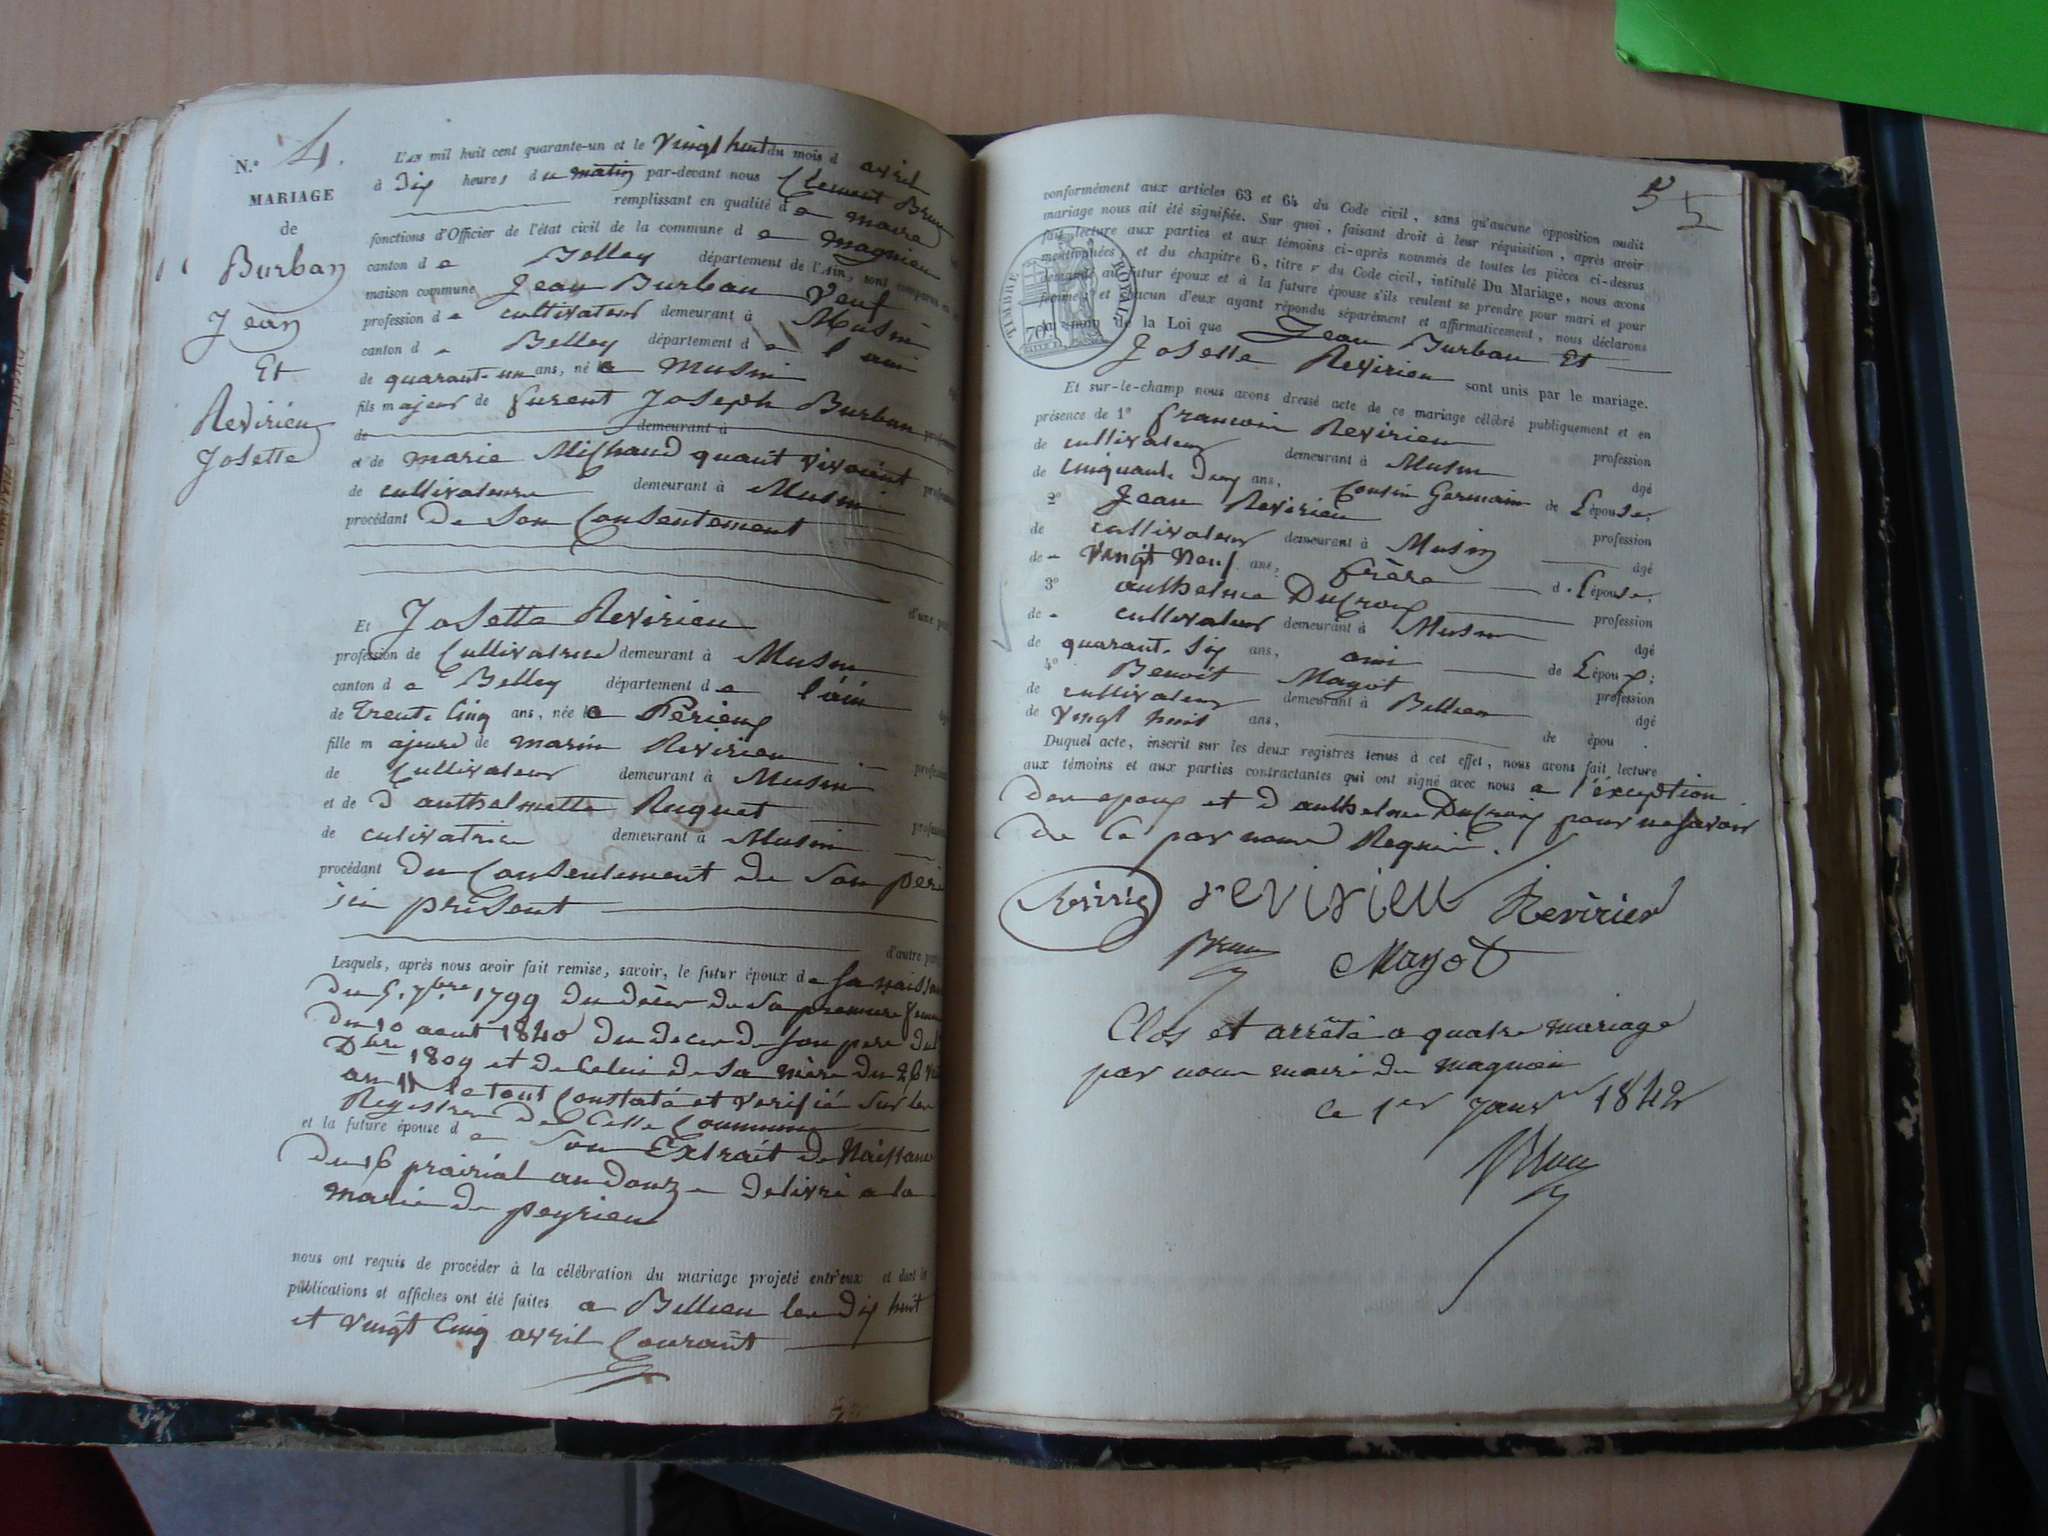 N.° 4.
MARIAGE
de
Burban
Jean
Et
Revirieu
Josette
L'an mil huit cent quarante-un et le vingt huit du mois d avril
à dix heures du matin par-devant nous Clement Brun
remplissant en qualité de maire
fonctions d'Officier de l'état civil de la commune de magnieu
canton de Belley département de l'Ain, sont comparus en
maison commune Jean Burban Veuf
profession de cultivateur demeurant à Musin
canton de Belley département de l'ain
de quarant-un ans, né à Musin
fils majeur de furent Joseph Burban
de demeurant à
et de marie Michaud quant vivaint
de cultivateure demeurant à Musin
procédant de Son Consentement
d'une part
Et Josette Revirieu
profession de Cultivatrice demeurant à Musin
canton de Belley département de l'ain
de trente Cinq ans, née à Pèrieux
fille majeure de marin Revirieu
de Cultivateur demeurant à Musin
et de d'anthelmette Ruquet
de culivatrice demeurant à Musin
procédant du Consentement de Son père
ici présent
d'autre part
Lesquels, après nous avoir fait remise, savoir, le futur époux de Sa naissan
du 5. 7bre 1799 du décer de Sa premiere femme
du 10 aout 1840 du decer de Son pere du
Dbre 1809 et de Celui de Sa mère du 26
an 11 le tout Constaté et verifié Sur les
Registres de Cette Commune
et la future épouse de Son Extrait de Naissance
du 16 prairial an douze delivré a la
marie de peyrieu
nous ont requis de procéder à la célébration du mariage projeté entr'eux et dont les
publications et affiches ont été faites a Billieu les dix huit
et vingt Cinq avril Courant
55
conformément aux articles 63 et 64 du Code civil, sans qu'aucune opposition audit
mariage nous ait été signifiée. Sur quoi, faisant droit à leur réquisition, après avoir
fait lecture aux parties et aux témoins ci-après nommés de toutes les pièces ci-dessus
mentionnées et du chapitre 6, titre v du Code civil, intitulé Du Mariage, nous avons
demandé au futur époux et à la future épouse s'ils veulent se prendre pour mari et pour
femme; et chacun d'eux ayant répondu séparément et affirmativement, nous déclarons
au nom de la Loi que Jean Burban Et
Josette Revirieu sont unis par le mariage.
TIMBRE ROYAL
70
Et sur-le-champ nous avons dressé acte de ce mariage célébré publiquement et en
présence de 1° francoin Revirieu profession
de cultivateur demeurant à Musin âgé
de Cinquante deux ans, Cousin Germain de l'épouse,
2° Jean Revirieu profession
de cultivateur demeurant à Musin âgé
de vingt Neuf ans, frère de l'épouse,
3° anthelme Ducroux profession
de cultivateur demeurant à Musin âgé
de quarant. Six ans, ami de l'époux;
4° Benoit Mayot profession
de cultivateur demeurant à Billieu âgé
de vingt huit ans, de épou .
Duquel acte, inscrit sur les deux registres tenus à cet effet, nous avons fait lecture
aux témoins et aux parties contractantes qui ont signé avec nous a l'éxception
des epoux et d'anthelme Ducroux pour ne Savoir
de Ce par nous Requis.
revirieu Revirieu
Brun Mayot
Clos et arrêté a quatre mariage
par nous maire de magnieu
Ce 1er Janvr 1842
Brun